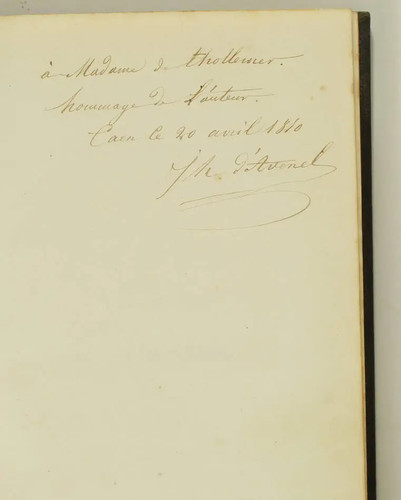 à Madame de thollemer.
hommage de l'auteur.
Caen le 20 avril 1810
d'Avenel